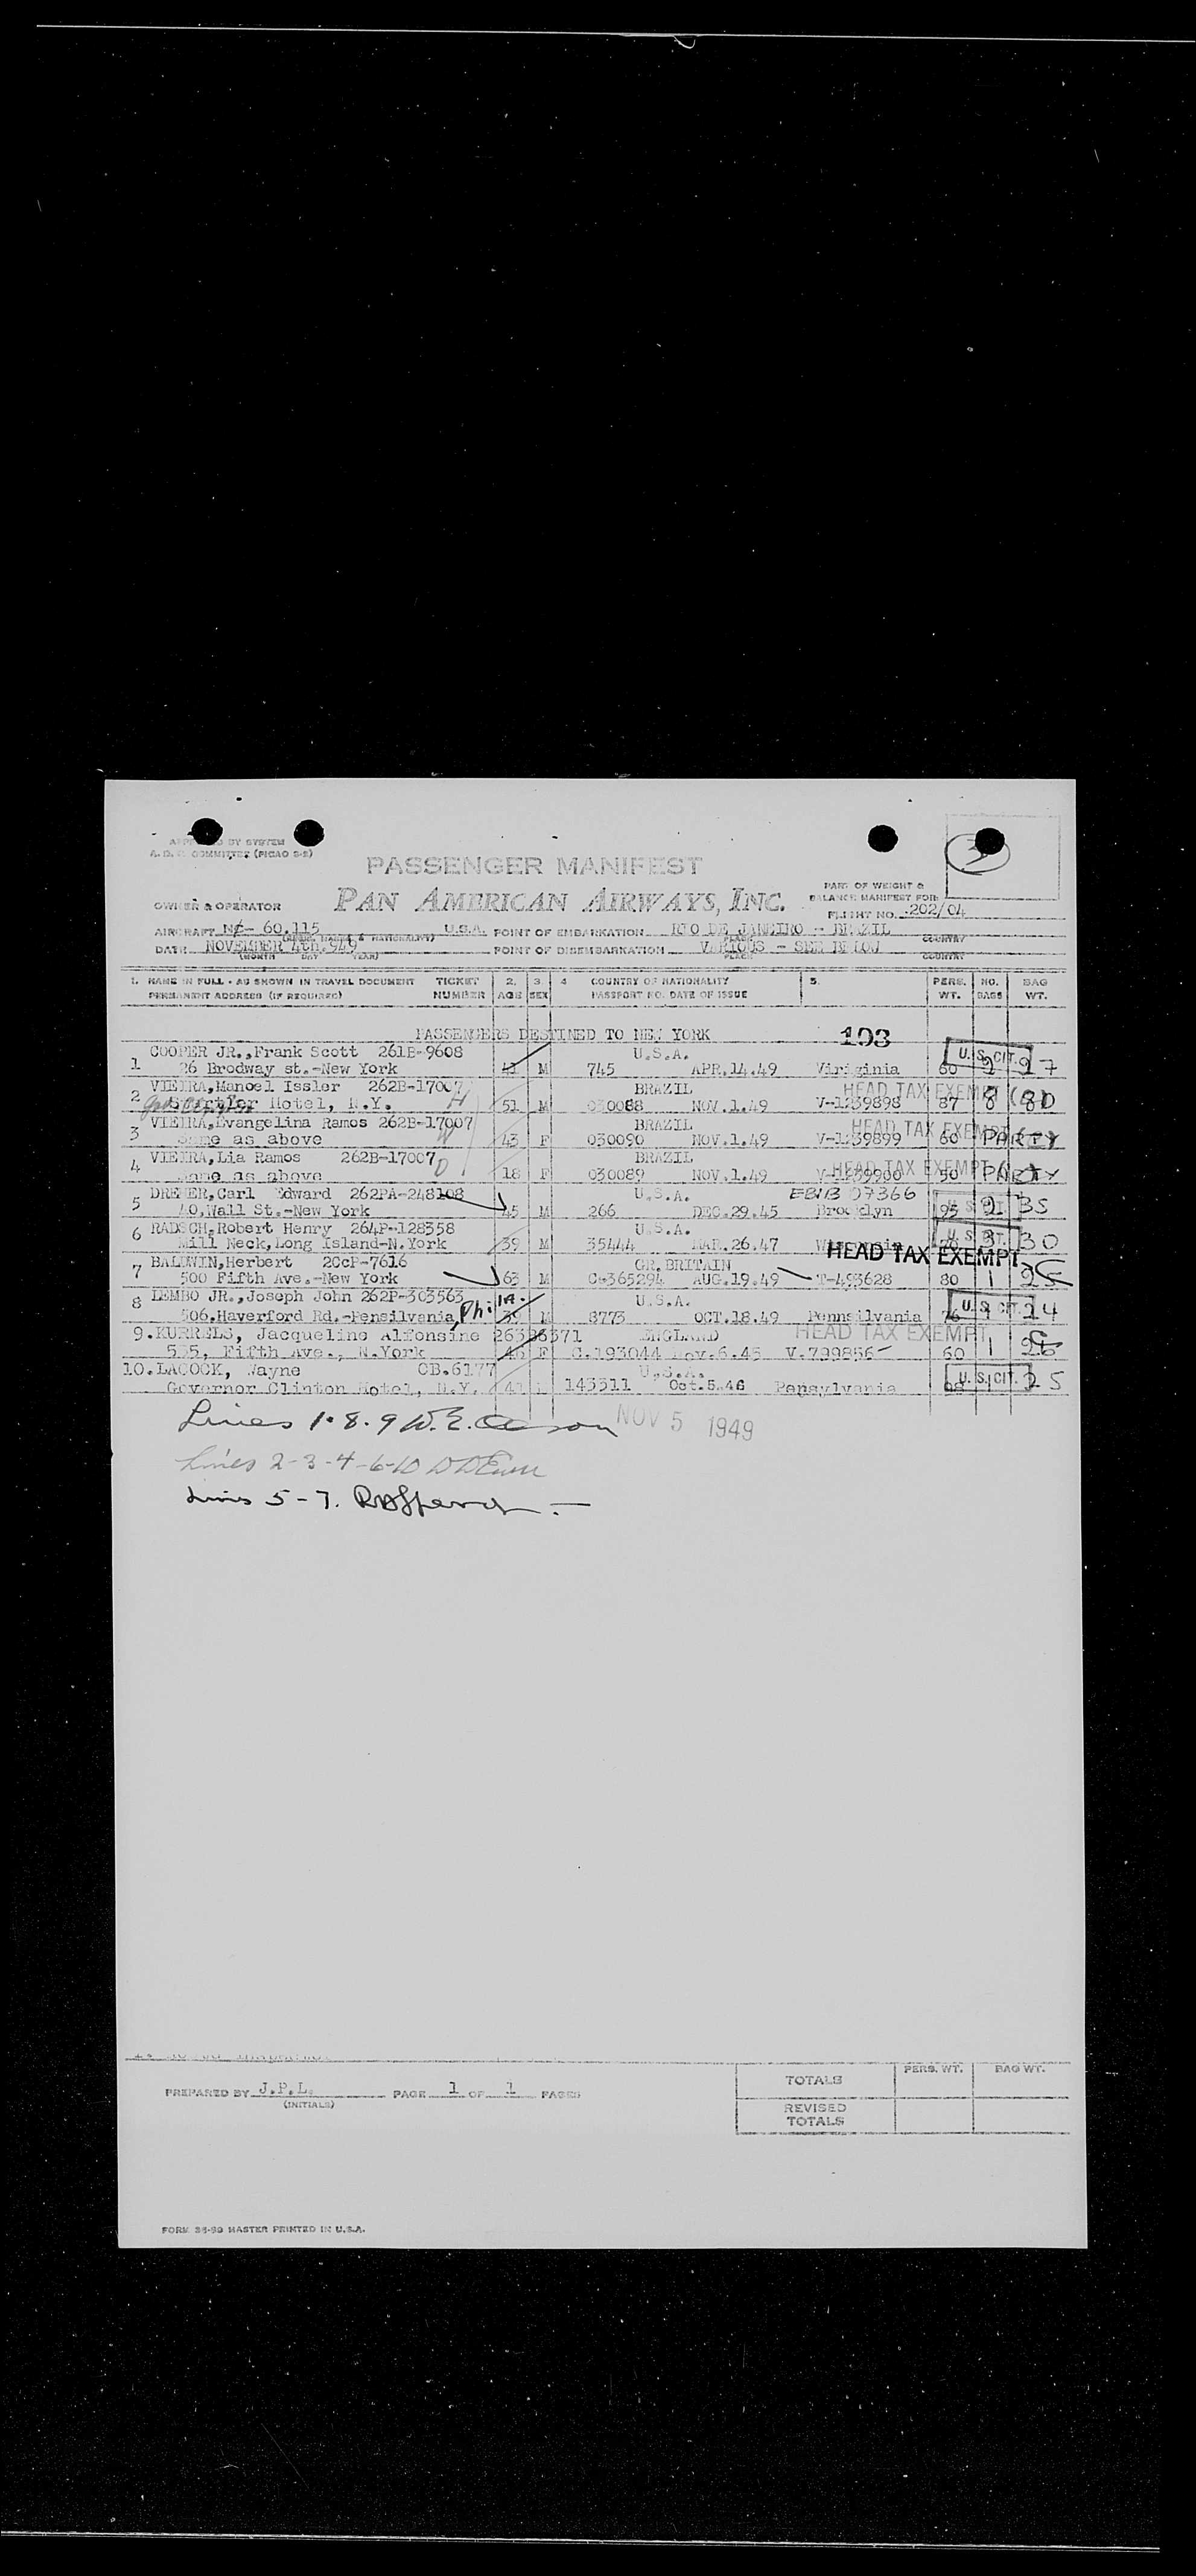 APPROVED BY SYSTEM
A. D. F. COMMITTEE (PICAO 2-2)
PASSENGER MANIFEST
PAN AMERICAN AIRWAYS, INC.
PART OF WEIGHT &
BALANCE MANIFEST FOR:
FLIGHT NO. 202/04
OWNER & OPERATOR
AIRCRAFT NC- 60.115 U.S.A. POINT OF EMBARKATION RIO DE JANEIRO - BRAZIL
DATE NOVEMBER 4th.949 POINT OF DISEMBARKATION VARIOUS - SEE BELOW
(MONTH DAY YEAR) PLACE COUNTRY
1. NAME IN FULL - AS SHOWN IN TRAVEL DOCUMENT TICKET 2. 3. 4 COUNTRY OF NATIONALITY 5. PERS. NO. BAG
PERMANENT ADDRESS (IF REQUIRED) NUMBER AGE SEX PASSPORT NO. DATE OF ISSUE WT. BAGS WT.
PASSENGERS DESTINED TO NEW YORK 103
COOPER JR.,Frank Scott 261B-9608 U.S.A. U.S. CIT.
1 26 Brodway st.-New York M 745 APR.14.49 Virginia 60 2 27
VIEIRA,Manoel Issler 262B-17007 BRAZIL HEAD TAX EXEMPT
2 Hotel, N.Y. H 51 M 030088 NOV.1.49 V-1239898 87 8 80
VIEIRA,Evangelina Ramos 262B-17007 BRAZIL HEAD TAX EXEMPT
3 Same as above W 43 F 030090 NOV.1.49 V-1239899 60 PARTY
VIEIRA,Lia Ramos 262B-17007 BRAZIL HEAD TAX EXEMPT
4 Same as above D 18 F 030089 NOV.1.49 V-1239900 50 PARTY
DREHER,Carl Edward 262PA-248108 U.S.A. 07366
5 40,Wall St.-New York 45 M 266 DEC.29.45 Brooklyn 95 2 35
6 RADSCH,Robert Henry 264P-128358 U.S.A. U.S. CIT.
Mill Neck,Long Island-N.York 39 M 35444 MAR.26.47 Wisconsin 3 30
HEAD TAX EXEMPT
BALDWIN,Herbert 20cP-7616 GR.BRITAIN
7 500 Fifth Ave.-New York 63 M C-365294 AUG.19.49 T-493628 80 1 25
8 LEMBO JR.,Joseph John 262P-303563 U.S.A. U.S. CIT.
506,Haverford Rd.-Pensilvania, Phila. M 8773 OCT.18.49 Pennsilvania 76 1 24
9.KURRELS, Jacqueline Alfonsine 26326371 ENGLAND HEAD TAX EXEMPT
555, Fifth Ave., N.York F C.193044 Nov.6.45 V.799856 60 1
10.LACOCK, Wayne CB.6177 U.S.A. U.S. CIT.
Governor Clinton Hotel, N.Y. 41 143311 Oct.5.46 Pensylvania 1 25
Lines 1.8.9 W.E. NOV 5 1949
Lines 2-3-4-6-10
Lines 5-7.
TOTALS PERS. WT. BAG WT.
PREPARED BY J.P.L. PAGE 1 OF 1 PAGES
(INITIALS)
REVISED
TOTALS
FORM 35-50 MASTER PRINTED IN U.S.A.